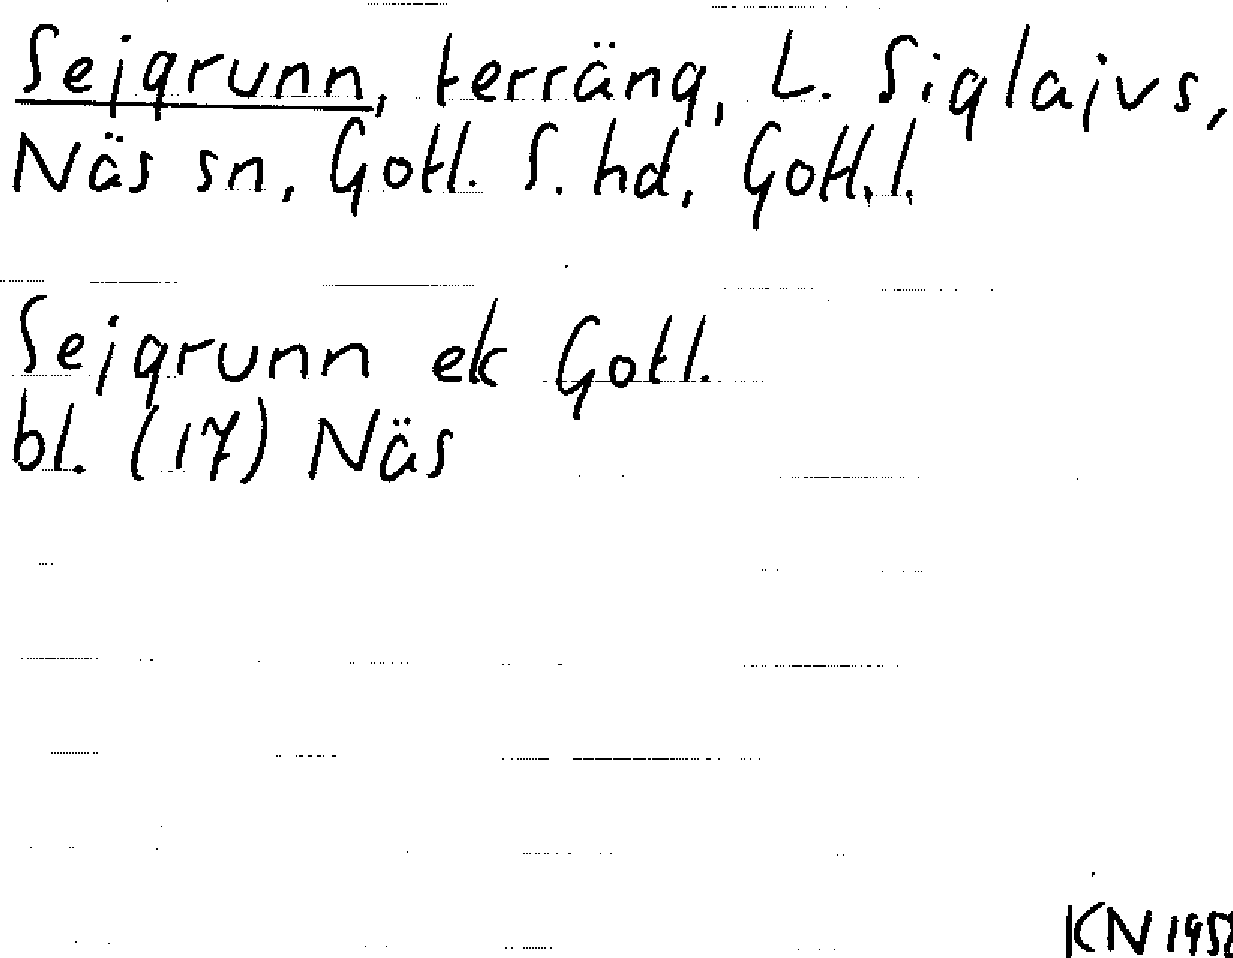 Sejgrunn, terräng, L. Siglajvs,
Näs sn, Gotl. S. hd, Gotl. l.
Sejgrunn ek Gotl.
bl. (17) Näs
KN